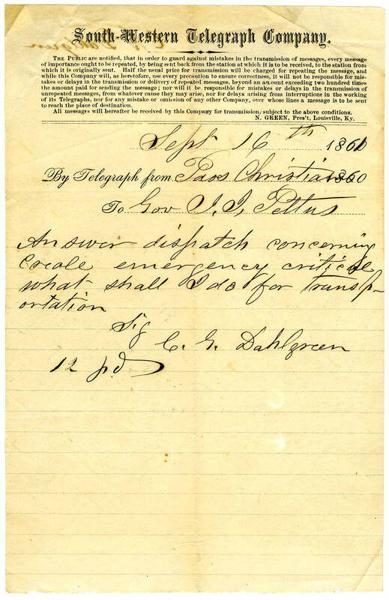 South-Western Telegraph Company.
THE PUBLIC are notified, that in order to guard against mistakes in the transmission of messages, every message
of importance ought to be repeated, by being sent back from the station at which it is to be received, to the station from
which it is originally sent. Half the usual price for transmission will be charged for repeating the message, and
while this Company will, as heretofore, use every precaution to ensure correctness, it will not be responsible for mis-
takes or delays in the transmission or delivery of repeated messages, beyond an amount exceeding two hundred times
the amount paid for sending the message; nor will it be responsible for mistakes or delays in the transmission of
unrepeated messages, from whatever cause they may arise, nor for delays arising from interruptions in the working
of its Telegraphs, nor for any mistake or omission of any other Company, over whose lines a message is to be sent
to reach the place of destination.
All messages will hereafter be received by this Company for transmission, subject to the above conditions.
N. GREEN, Pres't, Louisville, Ky.
Sept 16th 1861
By Telegraph from Pass Christian 1860
To Gov J. J. Pettus
Answer dispatch concerning
Creole emergency critical
what shall I do for transp-
ortation
Sig
C. G. Dahlgreen
12 pd